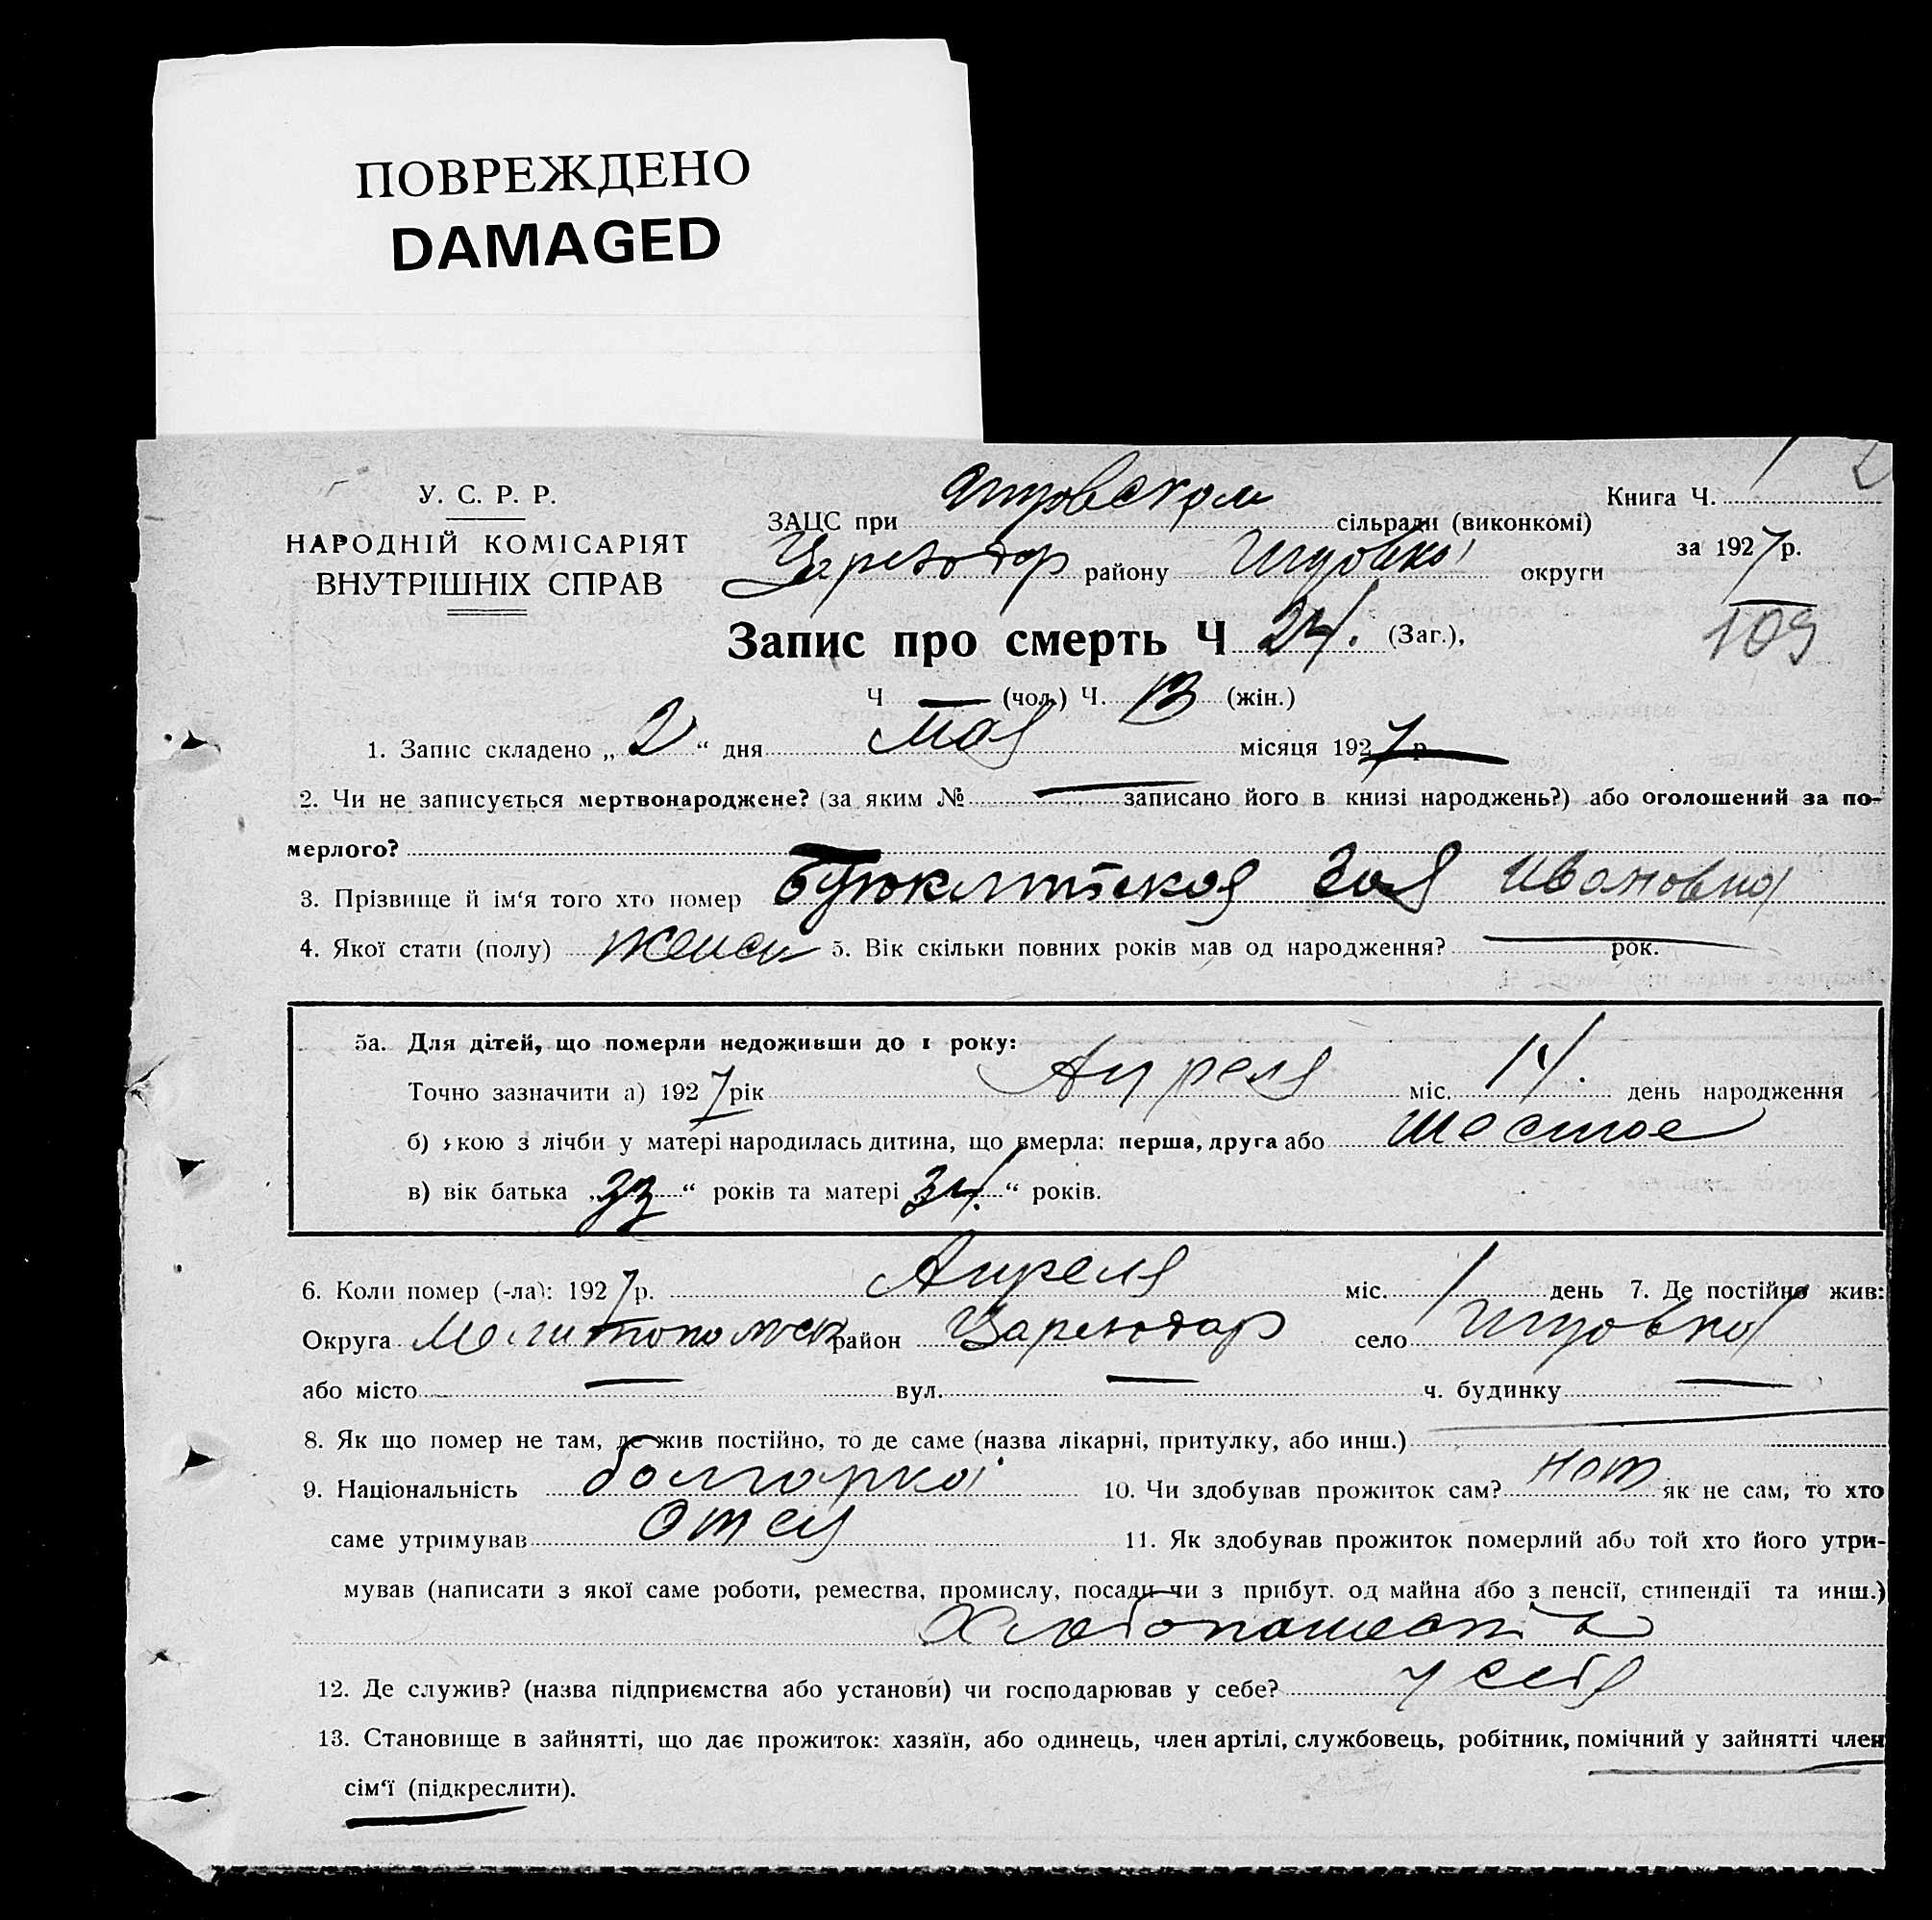 ПОВРЕЖДЕНО
DAMAGED
У. С. Р. Р.
НАРОДНІЙ КОМІСАРІЯТ
ВНУТРІШНІХ СПРАВ
ЗАЦС при сільради (виконкомі)
району округи
Книга Ч.
за 1927 р.
109
Запис про смерть Ч 24. (Заг.),
Ч — (чол.) Ч. 13 (жін.)
1. Запис складено „ 2 “ дня Мая місяця 1927 р.
2. Чи не записується мертвонароджене? (за яким № — записано його в книзі народжень?) або оголошений за по-
мерлого?
3. Прізвище й ім‘я того хто помер Зоя Ивановна
4. Якої стати (полу) женск 5. Вік скільки повних років мав од народження? — рок.
5а. Для дітей, що померли недоживши до 1 року:
Точно зазначити а) 1927 рік Апреля міс. 14. день народження
б) якою з лічби у матері народилась дитина, що вмерла: перша, друга або шестое
в) вік батька „ 33 “ років та матері 34. “ років.
6. Коли помер (-ла): 1927 р. Апреля міс. 1 день 7. Де постійно жив:
Округа Мелитопольск район село
або місто — вул. — ч. будинку —
8. Як що помер не там, де жив постійно, то де саме (назва лікарні, притулку, або инш.) —
9. Національність болгарка 10. Чи здобував прожиток сам? нет як не сам, то хто
саме утримував Отец 11. Як здобував прожиток померлий або той хто його утри-
мував (написати з якої саме роботи, ремества, промислу, посади чи з прибут. од майна або з пенсії, стипендії та инш.)
12. Де служив? (назва підприємства або установи) чи господарював у себе? у себя
13. Становище в зайнятті, що дає прожиток: хазяїн, або одинець, член артілі, службовець, робітник, помічний у зайнятті член
сім‘ї (підкреслити).